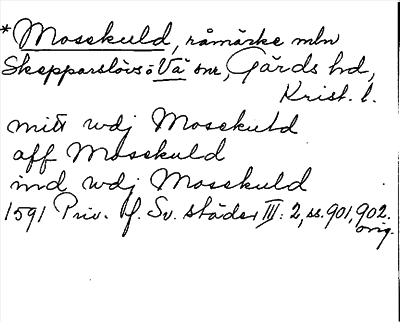 *Mosekuld, råmärke mln
Skepparslövs ō Vä snr, Gärds hd,
Krist. l.
mitt wdj Mosekuld
aff Mosekuld
ind wdj Mosekuld
1591 Priv. f. Sv. städer III: 2, ss. 901, 902.
orig.